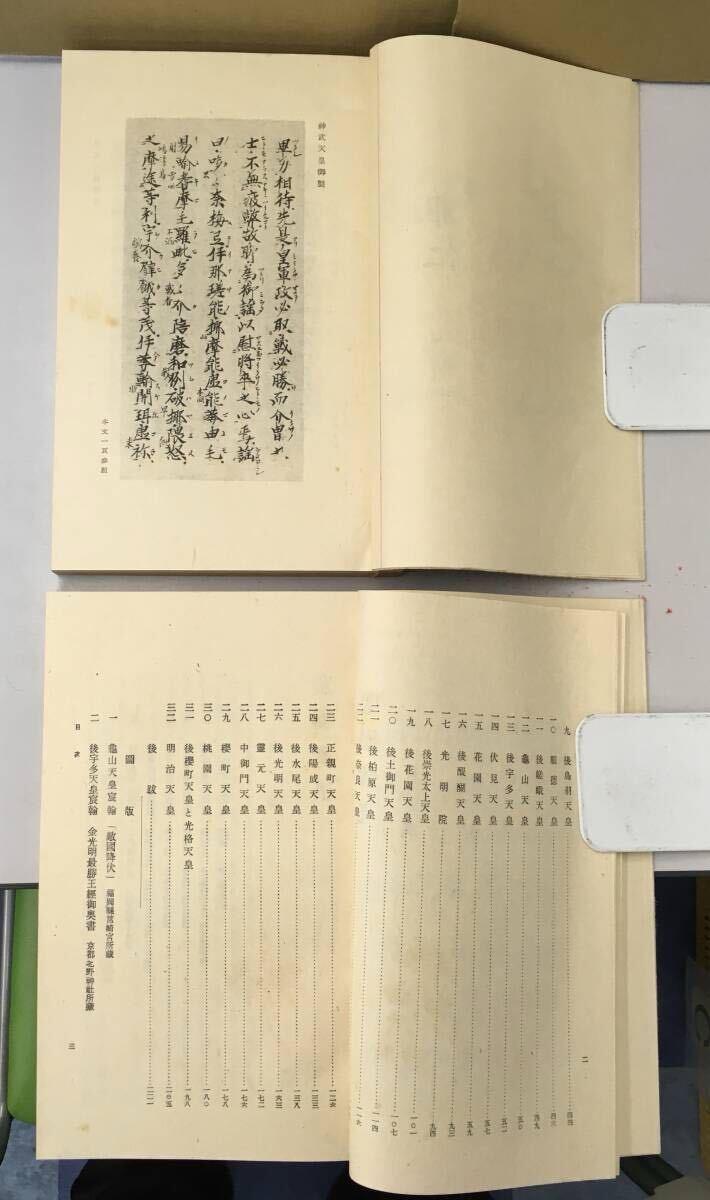 神武天皇御製
畢力相待先是皇軍攻必取戰必勝而介冑之
士不無疲弊故聊為御謠以慰將卒之心焉謠
曰哆々奈梅弖伊那瑳能椰摩能虛能莽由毛
易喩耆摩毛羅毗多々介陪磨和例破椰隈怒
之摩途等利宇介譬餓等茂伊莽輸開珥虛祢
本文一頁參照
九 後鳥羽天皇 四四
一〇 順德天皇 四六
一一 後嵯峨天皇 四九
一二 龜山天皇 五〇
一三 後宇多天皇
一四 伏見天皇
一五 花園天皇 五七
一六 後醍醐天皇 五九
一七 光明院 九三
一八 後崇光太上天皇 九四
一九 後花園天皇 一〇一
二〇 後土御門天皇 一〇七
二一 後柏原天皇 一一四
二二 後奈良天皇 一一六
二
二三 正親町天皇 一二六
二四 後陽成天皇 一三三
二五 後水尾天皇 一三八
二六 後光明天皇 一六三
二七 靈元天皇 一七二
二八 中御門天皇 一七六
二九 櫻町天皇 一七八
三〇 桃園天皇 一八〇
三一 後櫻町天皇と光格天皇 一九八
三二 明治天皇 二〇五
後跋 二二一
圖版
一 龜山天皇宸翰「敵國降伏」 福岡縣筥崎宮所藏
二 後宇多天皇宸翰 金光明最勝王經御奥書 京都北野神社所藏
目次 三